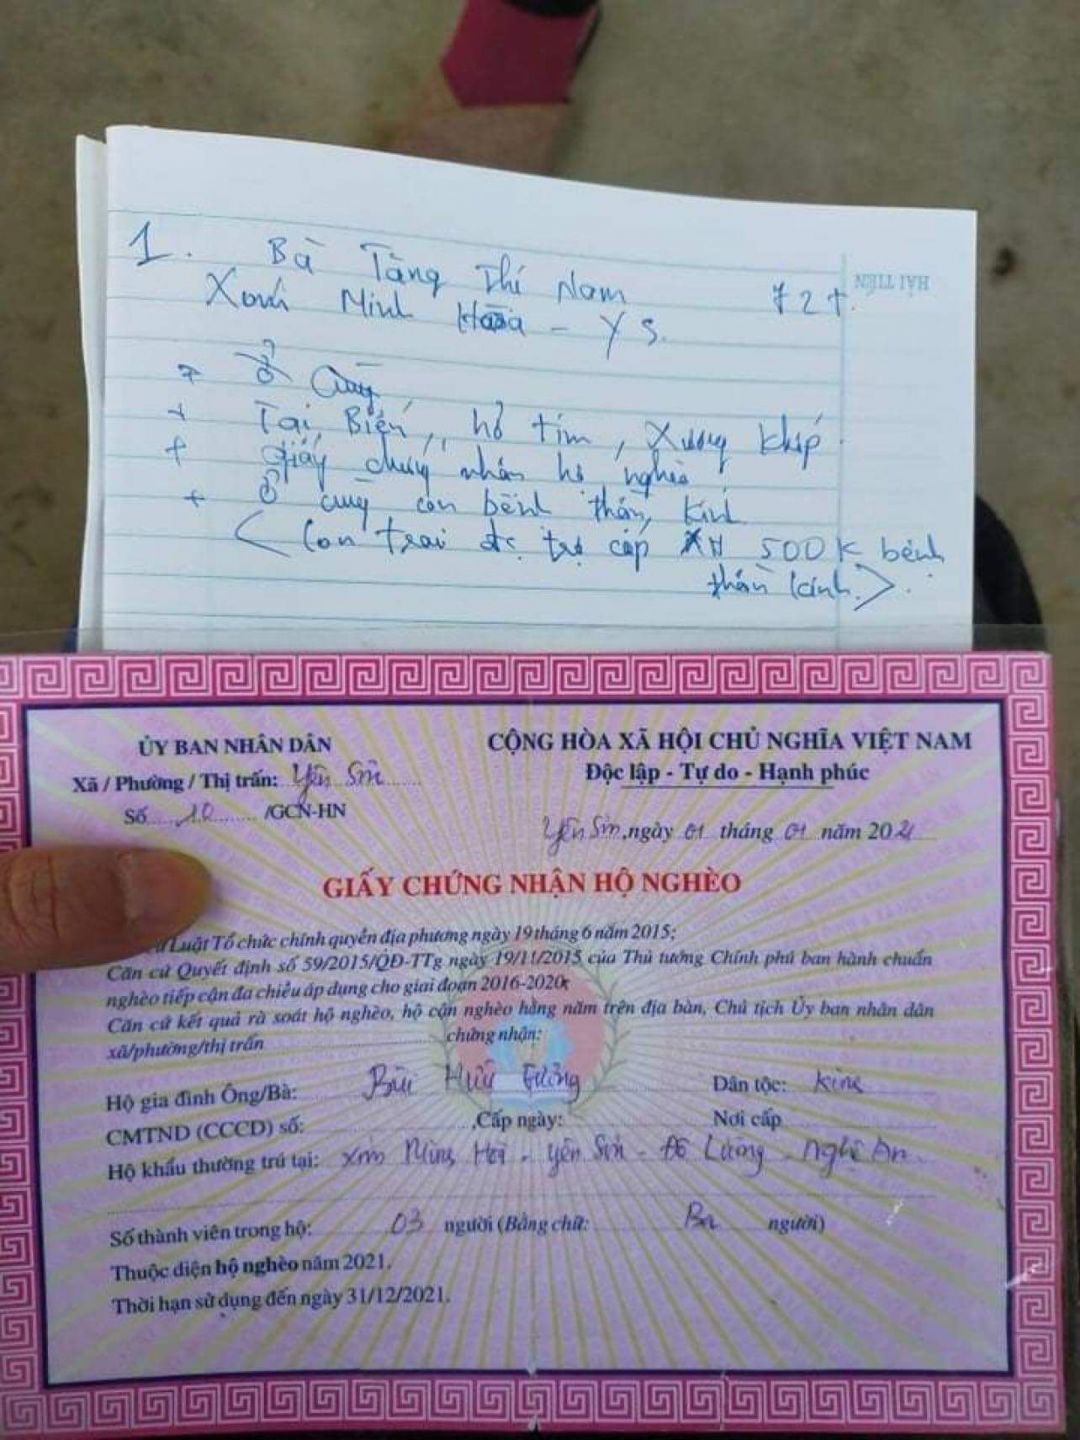 HẢI TIẾN
1. Bà Tăng Thị Nam 72t.
Xóm Minh Hòa - YS.
+ Ở cùng
+ Tai Biến, hở tim, Xương khớp.
+ Giấy chứng nhận hộ nghèo
+ Ở cùng con bệnh thần kinh
< Con trai đc trợ cấp XH 500K bệnh
thần kinh >.
ỦY BAN NHÂN DÂN
Xã / Phường / Thị trấn: Yên Sơn
Số 10 /GCN-HN
CỘNG HÒA XÃ HỘI CHỦ NGHĨA VIỆT NAM
Độc lập - Tự do - Hạnh phúc
Yên Sơn, ngày 01 tháng 01 năm 2021
GIẤY CHỨNG NHẬN HỘ NGHÈO
Luật Tổ chức chính quyền địa phương ngày 19 tháng 6 năm 2015;
Căn cứ Quyết định số 59/2015/QĐ-TTg ngày 19/11/2015 của Thủ tướng Chính phủ ban hành chuẩn
nghèo tiếp cận đa chiều áp dụng cho giai đoạn 2016-2020;
Căn cứ kết quả rà soát hộ nghèo, hộ cận nghèo hằng năm trên địa bàn, Chủ tịch Ủy ban nhân dân
xã/phường/thị trấn chứng nhận:
Hộ gia đình Ông/Bà: Bùi Hữu Dân tộc: Kinh
CMTND (CCCD) số: ,Cấp ngày: Nơi cấp
Hộ khẩu thường trú tại: xóm Minh Hòa - Yên Sơn - Đô Lương - Nghệ An.
Số thành viên trong hộ: 03 người (Bằng chữ: Ba người)
Thuộc diện hộ nghèo năm 2021.
Thời hạn sử dụng đến ngày 31/12/2021.